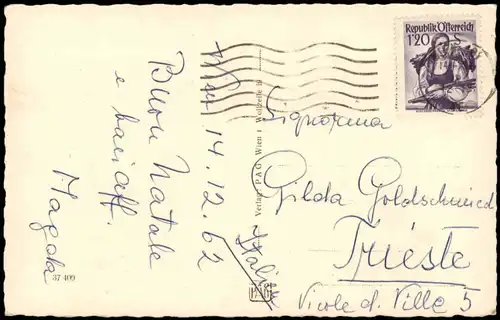 Wien 14.12.62
Buon Natale
e baci aff.
Magda
37 409
Verlag: P A G, Wien I Wollzeile
PAG
Republik Österreich
1'20
Signorina
Gilda Goldschmied
Trieste
Vicolo d. Ville 5
Italien